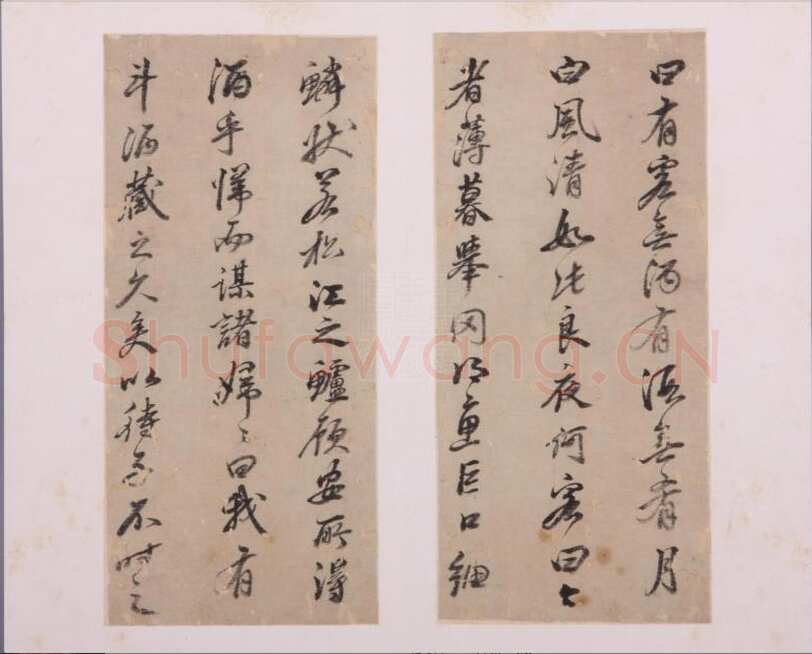 曰有客無酒有酒無肴月
白風清如此良夜何客曰今
者薄暮舉网得魚巨口細
鱗狀若松江之鱸顧安所得
酒乎歸而謀諸婦〻曰我有
斗酒藏之久矣以待子不時之
Shufawang.CN